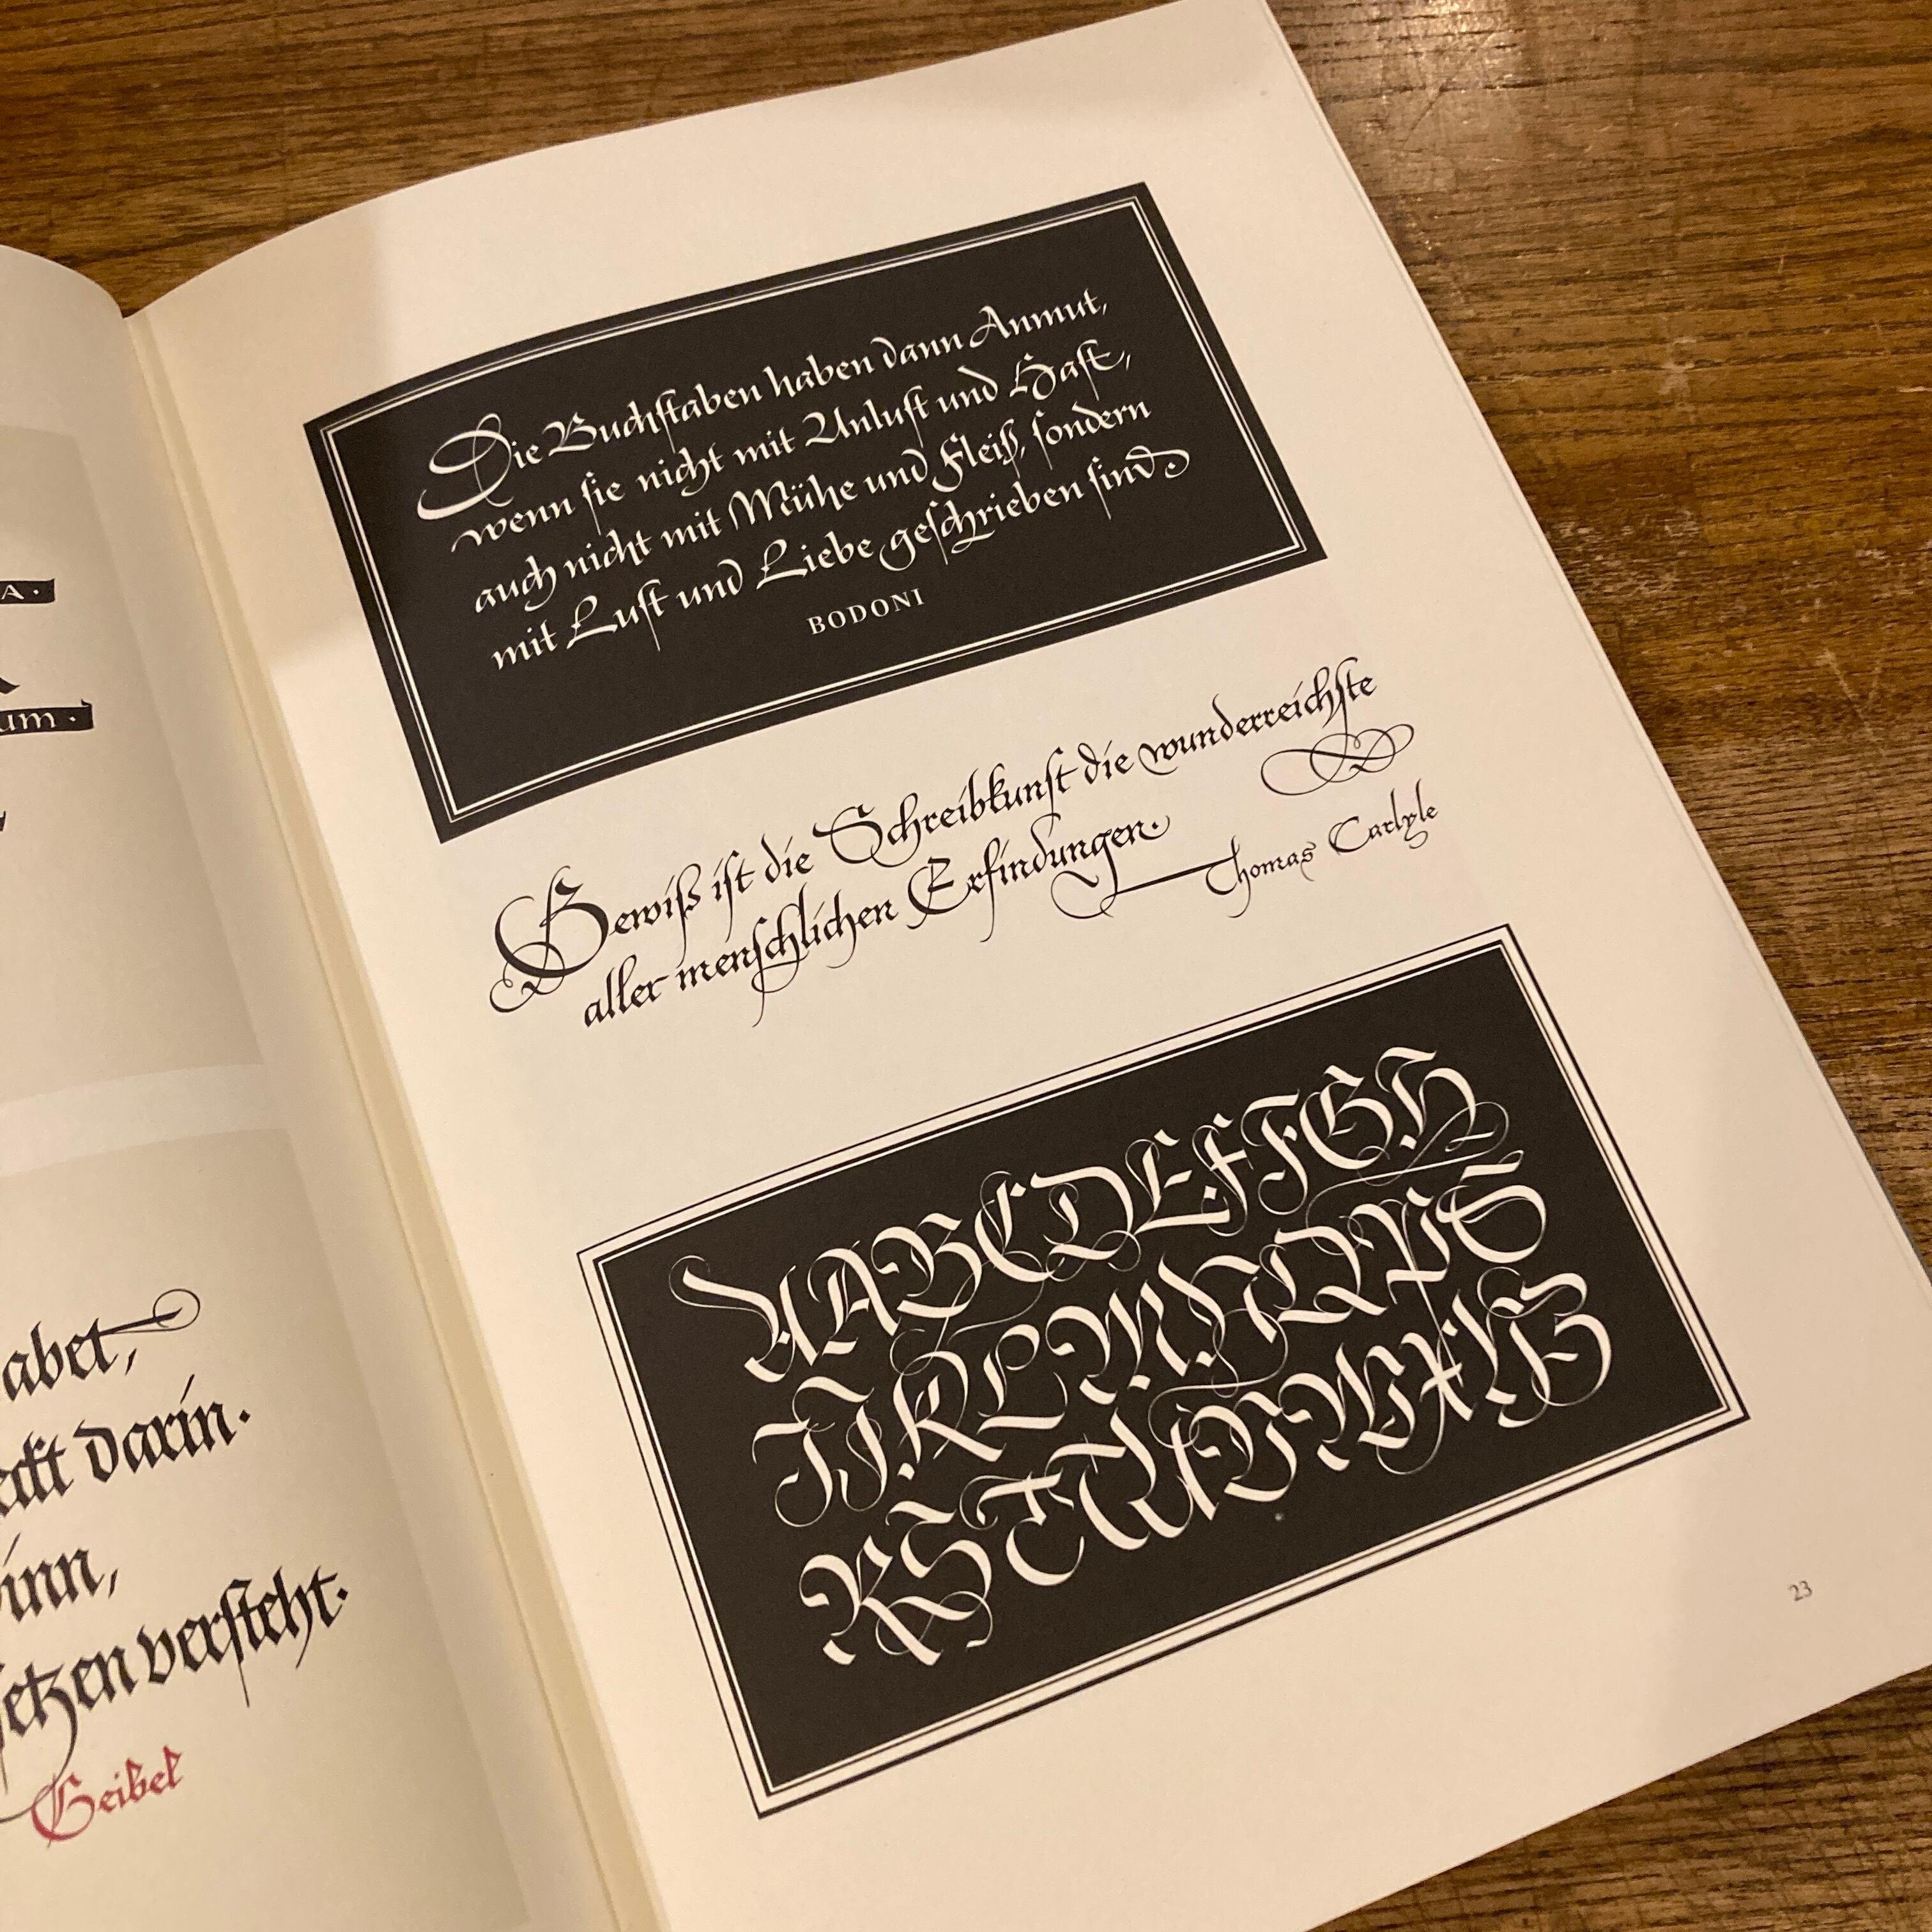 A.
um.
abet,
eckt darin.
inn,
setzen versteht.
Geibel
Die Buchſtaben haben dann Anmut,
wenn ſie nicht mit Unluſt und Haſt,
auch nicht mit Mühe und Fleiß, ſondern
mit Luſt und Liebe geſchrieben ſind.
BODONI
Gewiß iſt die Schreibkunſt die wunderreichſte
aller menſchlichen Erfindungen.
Thomas Carlyle
A A B C D E F F G H
I J K L M N O P S
R S T U V W X Y Z
23